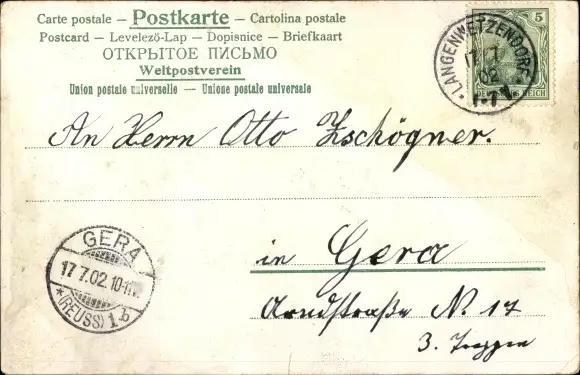 Carte postale – Postkarte – Cartolina postale
Postcard – Levelező-Lap – Dopisnice – Briefkaart
ОТКРЫТОЕ ПИСЬМО
Weltpostverein
Union postale universelle – Unione postale universale
5
LANGENWETZENDORF
17 7
02
DEUTSCHES REICH
An Herrn Otto Zschögner.
GERA
17 7.02.10-11
*(REUSS) 1.b
in Gera
Arndtstraße N. 17
3. Treppen